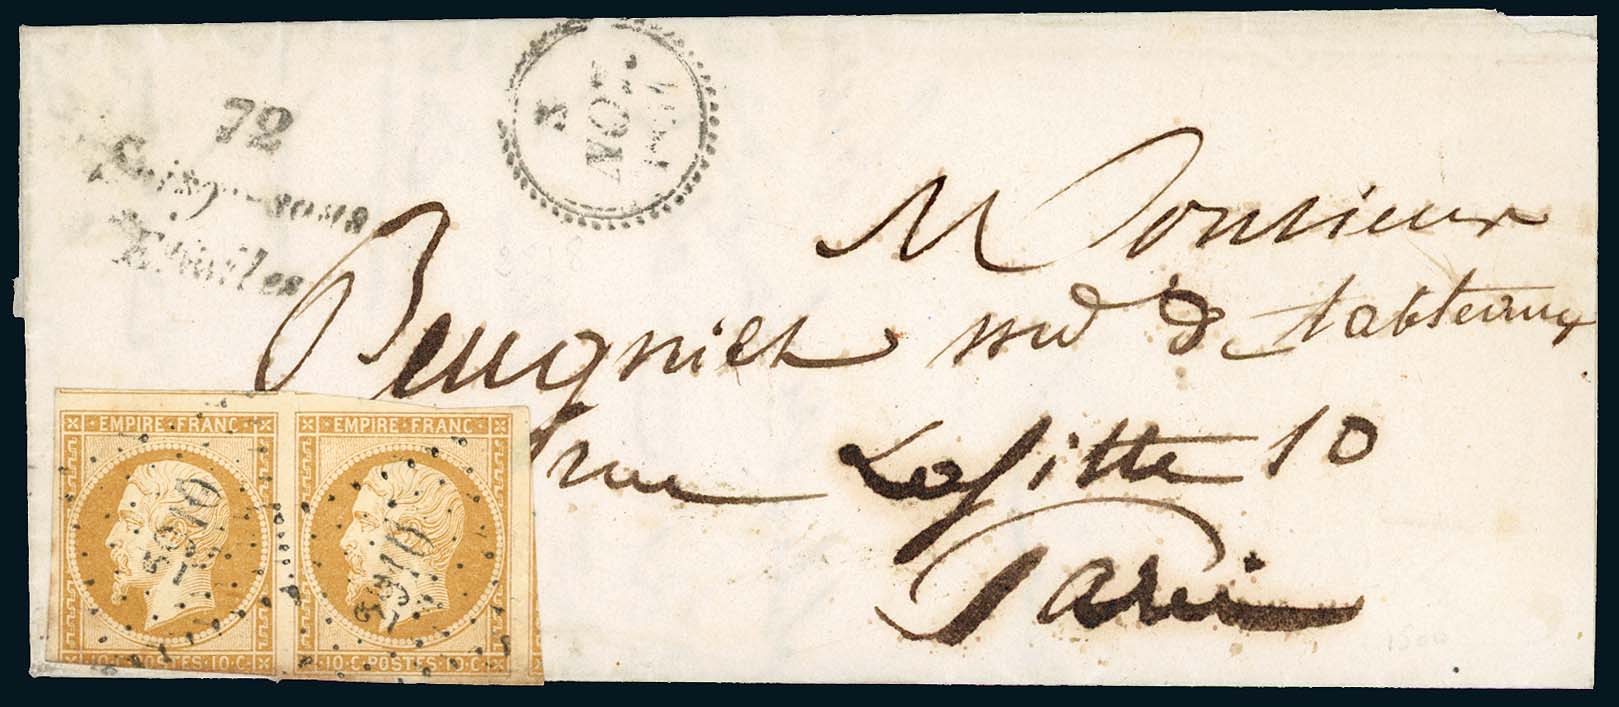 72
Soisy-sous
Etiolles
3
NOV.
Monsieur
Beugniet md de tableaux
rue Lafitte 10
Paris
EMPIRE FRANC
10·C·POSTES·10·C·
EMPIRE FRANC
10·C·POSTES·10·C·